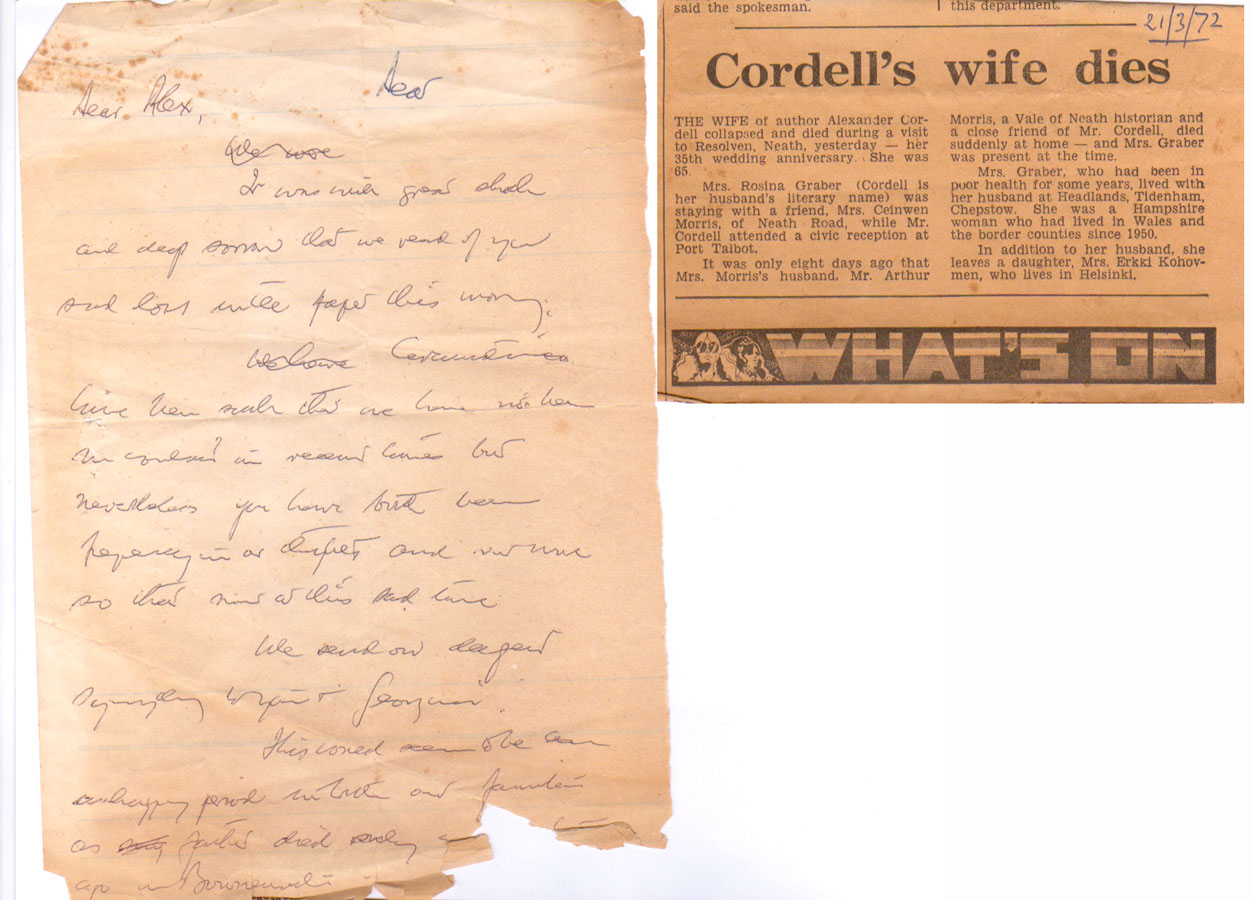 Dear Alex, Dear
We were
It was with great shock
and deep sorrow that we read of your
sad loss in the paper this morning.
We have Circumstances
have been such that we have not been
in contact in recent times but
nevertheless you have both been
frequently in our thoughts and
so that now at this sad time
We send our deepest
sympathy to you & Georgina.
This would seem to be an
unhappy period in both our families
as my father died
ago in Bournemouth
said the spokesman.
this department.
21/3/72
Cordell's wife dies
THE WIFE of author Alexander Cor-
dell collapsed and died during a visit
to Resolven, Neath, yesterday — her
35th wedding anniversary. She was
65.
Mrs. Rosina Graber (Cordell is
her husband's literary name) was
staying with a friend, Mrs. Ceinwen
Morris, of Neath Road, while Mr.
Cordell attended a civic reception at
Port Talbot.
It was only eight days ago that
Mrs. Morris's husband, Mr. Arthur
Morris, a Vale of Neath historian and
a close friend of Mr. Cordell, died
suddenly at home — and Mrs. Graber
was present at the time.
Mrs. Graber, who had been in
poor health for some years, lived with
her husband at Headlands, Tidenham,
Chepstow. She was a Hampshire
woman who had lived in Wales and
the border counties since 1950.
In addition to her husband, she
leaves a daughter, Mrs. Erkki Kohov-
men, who lives in Helsinki.
WHAT'S ON